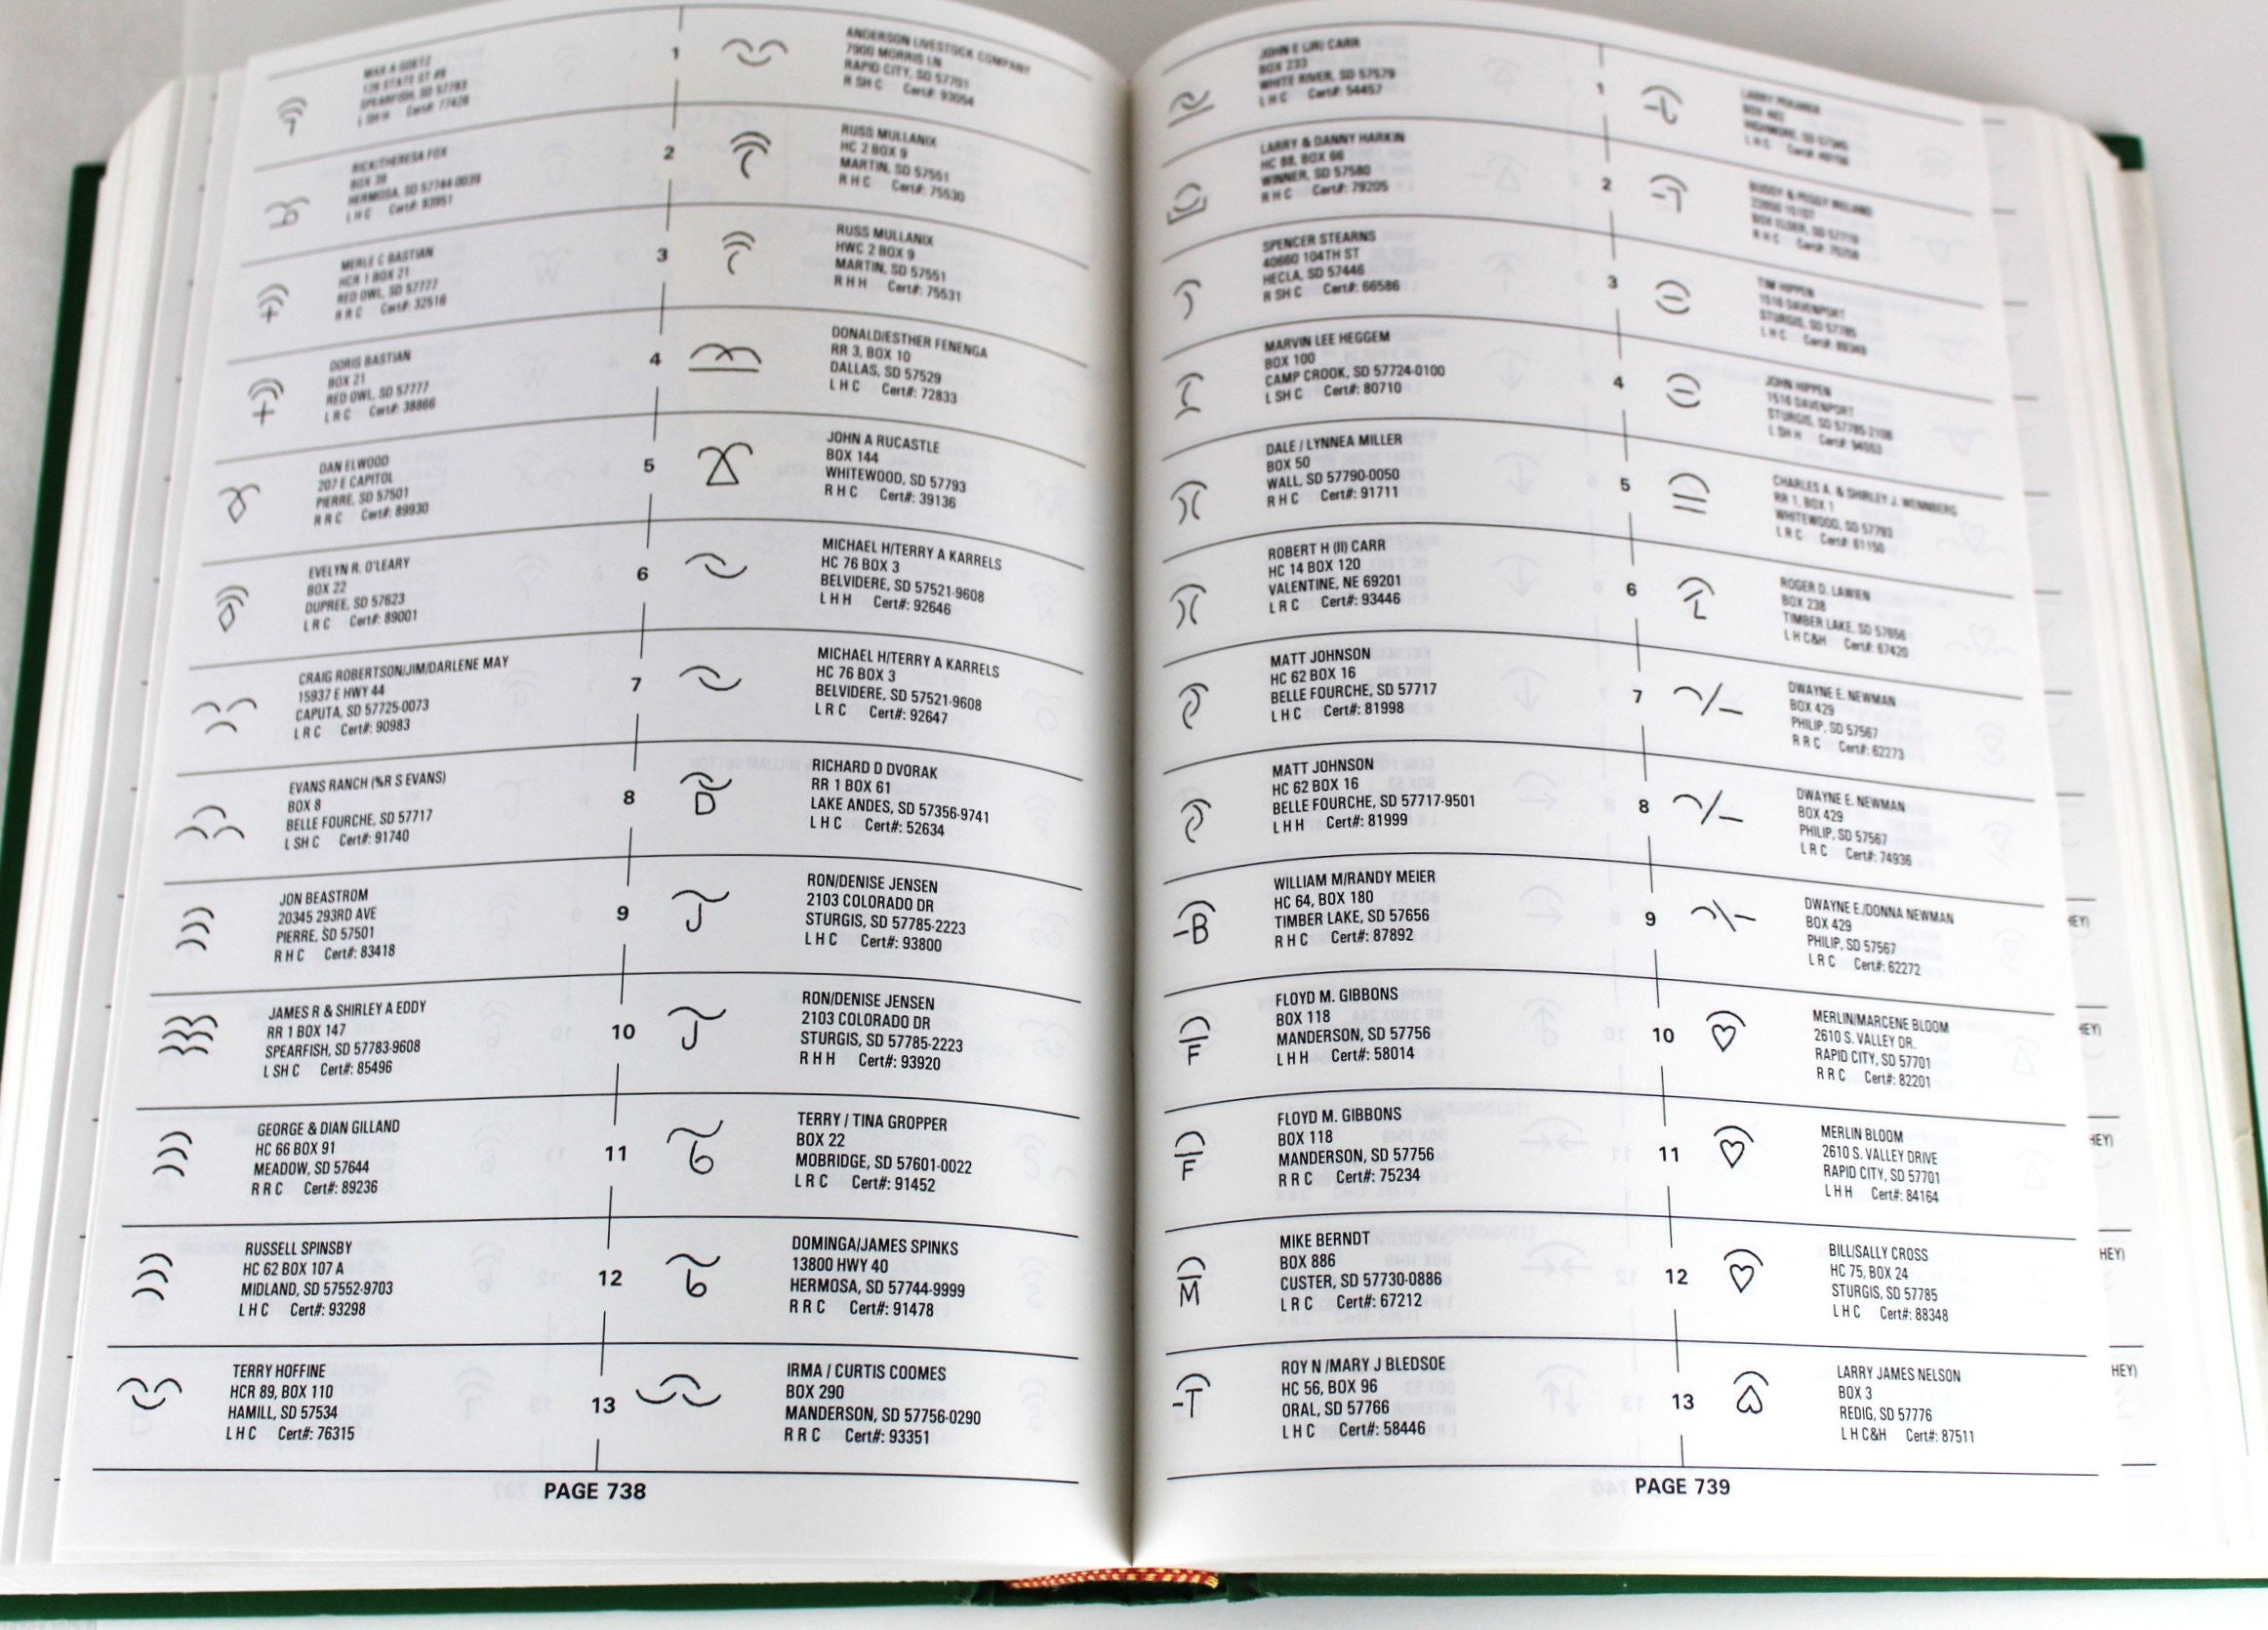 1
ANDERSON LIVESTOCK COMPANY
7900 MORRIS LN
RAPID CITY, SD 57701
R SH C Cert#: 93054
RICK/THERESA FOX
BOX 39
HERMOSA, SD 57744-0039
L H C Cert#: 93951
2
RUSS MULLANIX
HC 2 BOX 9
MARTIN, SD 57551
R H C Cert#: 75530
MERLE C BASTIAN
HCR 1 BOX 21
RED OWL, SD 57777
R R C Cert#: 32516
3
RUSS MULLANIX
HWC 2 BOX 9
MARTIN, SD 57551
R H H Cert#: 75531
DORIS BASTIAN
BOX 21
RED OWL, SD 57777
L R C Cert#: 38866
4
DONALD/ESTHER FENENGA
RR 3, BOX 10
DALLAS, SD 57529
L H C Cert#: 72833
DAN ELWOOD
207 E CAPITOL
PIERRE, SD 57501
R R C Cert#: 89930
5
JOHN A RUCASTLE
BOX 144
WHITEWOOD, SD 57793
R H C Cert#: 39136
EVELYN R. O'LEARY
BOX 22
DUPREE, SD 57623
L R C Cert#: 89001
6
MICHAEL H/TERRY A KARRELS
HC 76 BOX 3
BELVIDERE, SD 57521-9608
L H H Cert#: 92646
CRAIG ROBERTSON/JIM/DARLENE MAY
15937 E HWY 44
CAPUTA, SD 57725-0073
L R C Cert#: 90983
7
MICHAEL H/TERRY A KARRELS
HC 76 BOX 3
BELVIDERE, SD 57521-9608
L R C Cert#: 92647
EVANS RANCH (%R S EVANS)
BOX 8
BELLE FOURCHE, SD 57717
L SH C Cert#: 91740
8
D
RICHARD D DVORAK
RR 1 BOX 61
LAKE ANDES, SD 57356-9741
L H C Cert#: 52634
JON BEASTROM
20345 293RD AVE
PIERRE, SD 57501
R H C Cert#: 83418
9
J
RON/DENISE JENSEN
2103 COLORADO DR
STURGIS, SD 57785-2223
L H C Cert#: 93800
JAMES R & SHIRLEY A EDDY
RR 1 BOX 147
SPEARFISH, SD 57783-9608
L SH C Cert#: 85496
10
J
RON/DENISE JENSEN
2103 COLORADO DR
STURGIS, SD 57785-2223
R H H Cert#: 93920
GEORGE & DIAN GILLAND
HC 66 BOX 91
MEADOW, SD 57644
R R C Cert#: 89236
11
6
TERRY / TINA GROPPER
BOX 22
MOBRIDGE, SD 57601-0022
L R C Cert#: 91452
RUSSELL SPINSBY
HC 62 BOX 107 A
MIDLAND, SD 57552-9703
L H C Cert#: 93298
12
6
DOMINGA/JAMES SPINKS
13800 HWY 40
HERMOSA, SD 57744-9999
R R C Cert#: 91478
TERRY HOFFINE
HCR 89, BOX 110
HAMILL, SD 57534
L H C Cert#: 76315
13
IRMA / CURTIS COOMES
BOX 290
MANDERSON, SD 57756-0290
R R C Cert#: 93351
PAGE 738
JOHN E (JR) CARR
BOX 233
WHITE RIVER, SD 57579
L H C Cert#: 54457
1
LARRY & DANNY HARKIN
HC 88, BOX 66
WINNER, SD 57580
R H C Cert#: 79205
2
SPENCER STEARNS
40660 104TH ST
HECLA, SD 57446
R SH C Cert#: 66586
3
TIM HIPPEN
1516 DAVENPORT
STURGIS, SD 57785
L H C
MARVIN LEE HEGGEM
BOX 100
CAMP CROOK, SD 57724-0100
L SH C Cert#: 80710
4
JOHN HIPPEN
1516 DAVENPORT
STURGIS, SD 57785-2108
L SH H Cert#: 94553
DALE / LYNNEA MILLER
BOX 50
WALL, SD 57790-0050
R H C Cert#: 91711
5
CHARLES A. & SHIRLEY J. WENNBERG
RR 1, BOX 1
WHITEWOOD, SD 57793
L R C Cert#: 61150
ROBERT H (II) CARR
HC 14 BOX 120
VALENTINE, NE 69201
L R C Cert#: 93446
6
L
ROGER D. LAWIEN
BOX 238
TIMBER LAKE, SD 57656
L H C&H Cert#: 67420
MATT JOHNSON
HC 62 BOX 16
BELLE FOURCHE, SD 57717
L H C Cert#: 81998
7
DWAYNE E. NEWMAN
BOX 429
PHILIP, SD 57567
R R C Cert#: 62273
MATT JOHNSON
HC 62 BOX 16
BELLE FOURCHE, SD 57717-9501
L H H Cert#: 81999
8
DWAYNE E. NEWMAN
BOX 429
PHILIP, SD 57567
L R C Cert#: 74936
-B
WILLIAM M/RANDY MEIER
HC 64, BOX 180
TIMBER LAKE, SD 57656
R H C Cert#: 87892
9
DWAYNE E./DONNA NEWMAN
BOX 429
PHILIP, SD 57567
L R C Cert#: 62272
F
FLOYD M. GIBBONS
BOX 118
MANDERSON, SD 57756
L H H Cert#: 58014
10
MERLIN/MARCENE BLOOM
2610 S. VALLEY DR.
RAPID CITY, SD 57701
R R C Cert#: 82201
F
FLOYD M. GIBBONS
BOX 118
MANDERSON, SD 57756
R R C Cert#: 75234
11
MERLIN BLOOM
2610 S. VALLEY DRIVE
RAPID CITY, SD 57701
L H H Cert#: 84164
M
MIKE BERNDT
BOX 886
CUSTER, SD 57730-0886
L R C Cert#: 67212
12
BILL/SALLY CROSS
HC 75, BOX 24
STURGIS, SD 57785
L H C Cert#: 88348
-T
ROY N /MARY J BLEDSOE
HC 56, BOX 96
ORAL, SD 57766
L H C Cert#: 58446
13
LARRY JAMES NELSON
BOX 3
REDIG, SD 57776
L H C&H Cert#: 87511
PAGE 739
HEY)
HEY)